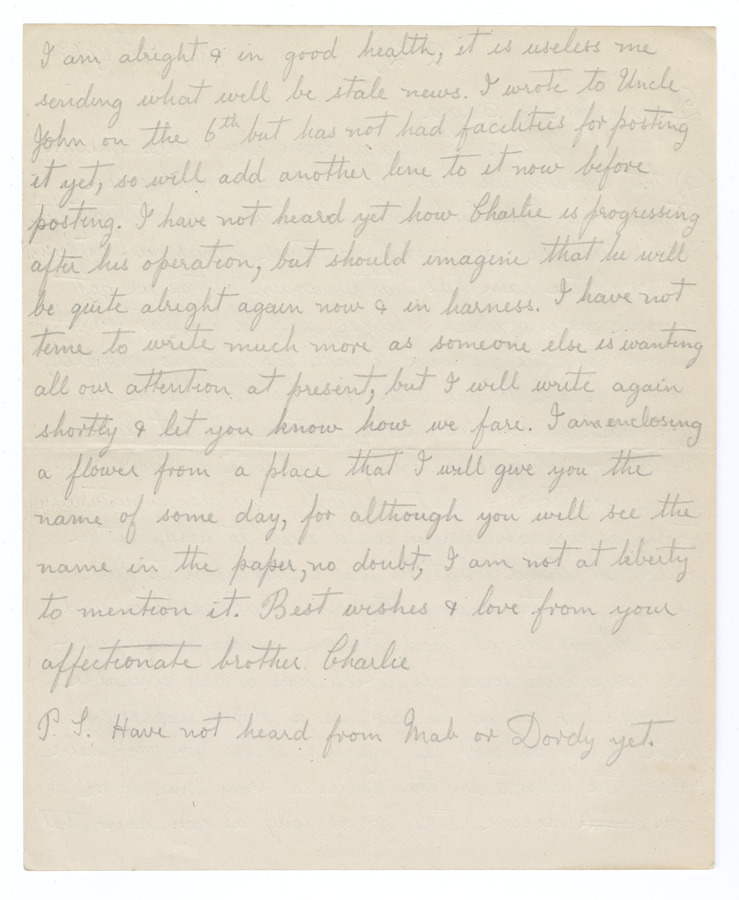 I am alright & in good health, it is useless me
sending what will be stale news. I wrote to Uncle
John on the 6th but has not had facilities for posting
it yet, so will add another line to it now before
posting. I have not heard yet how Charlie is progressing
after his operation, but should imagine that he will
be quite alright again now & in harness. I have not
time to write much more as someone else is wanting
all our attention at present, but I will write again
shortly & let you know how we fare. I am enclosing
a flower from a place that I will give you the
name of some day, for although you will see the
name in the paper, no doubt, I am not at liberty
to mention it. Best wishes & love from your
affectionate brother Charlie
P. S. Have not heard from Mab or Dordy yet.